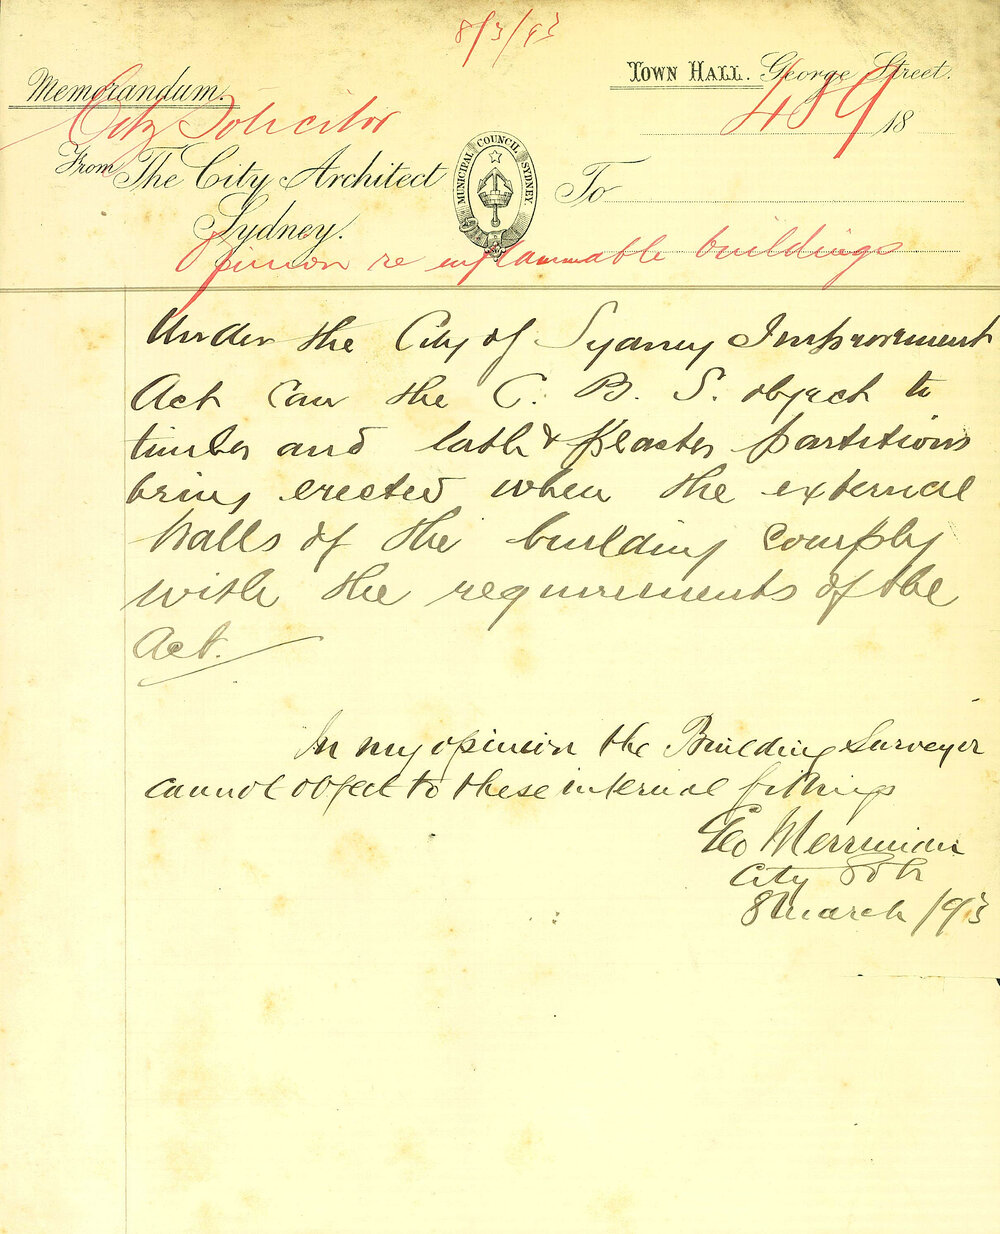 8/3/93
Town Hall. George Street.
Memorandum.
City Solicitor
489
18
From The City Architect
Sydney.
MUNICIPAL COUNCIL SYDNEY.
To
Opinion re inflammable buildings
Under the City of Sydney Improvement
Act can the C. B. S. object to
timber and lath & plaster partitions
being erected when the external
walls of the building comply
with the requirements of the
Act.
In my opinion the Building Surveyor
cannot object to these internal fittings
Geo Merriman
City Solr
8 March /93